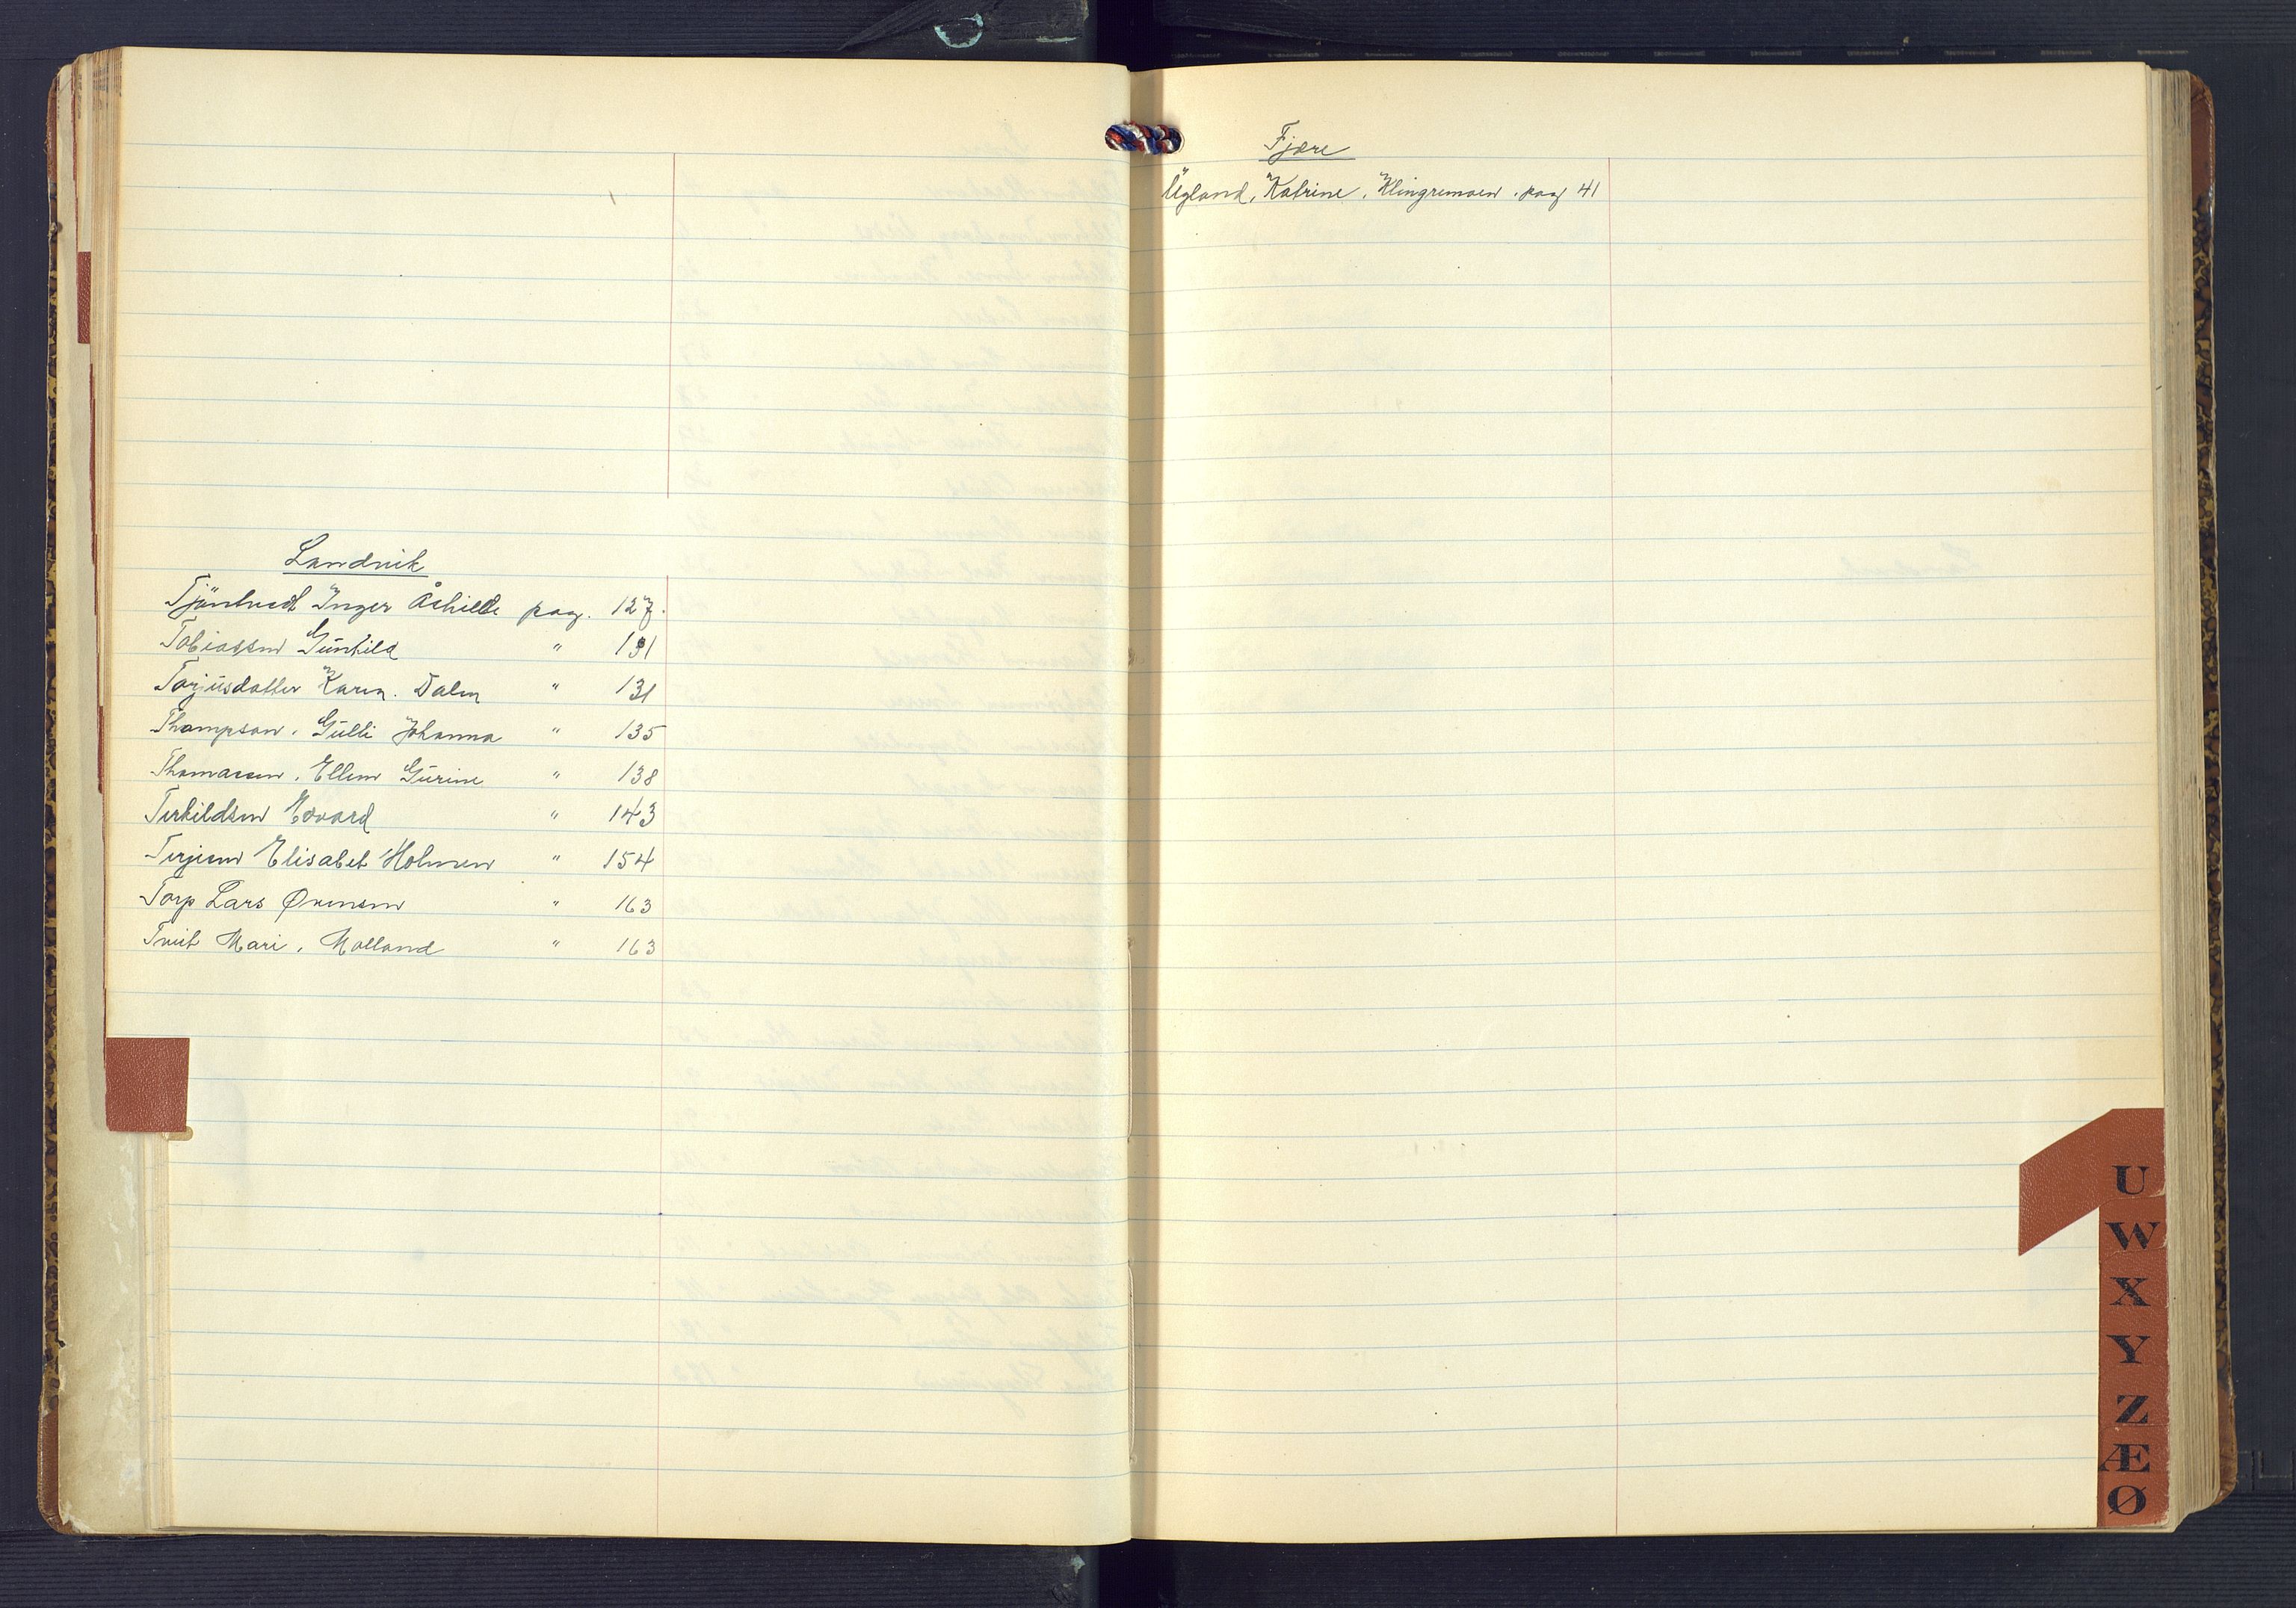 Landvik
Tjöntvedt Inger Åshilde pag. 127.
Tobiassen Gunhild " 131
Torjusdatter Karen. Dalen " 131
Thompson. Gulli Johanna " 135
Thomassen. Ellen Gurine " 138
Terkildsen Edvard " 143
Terjesen Elisabet Holmen " 154
Torp Lars Ovensen " 163
Tveit Mari. Molland " 163
Fjære
Ugland, Katrine. Klingremoen. pag 41
U
W
X
Y
Z
Æ
Ø